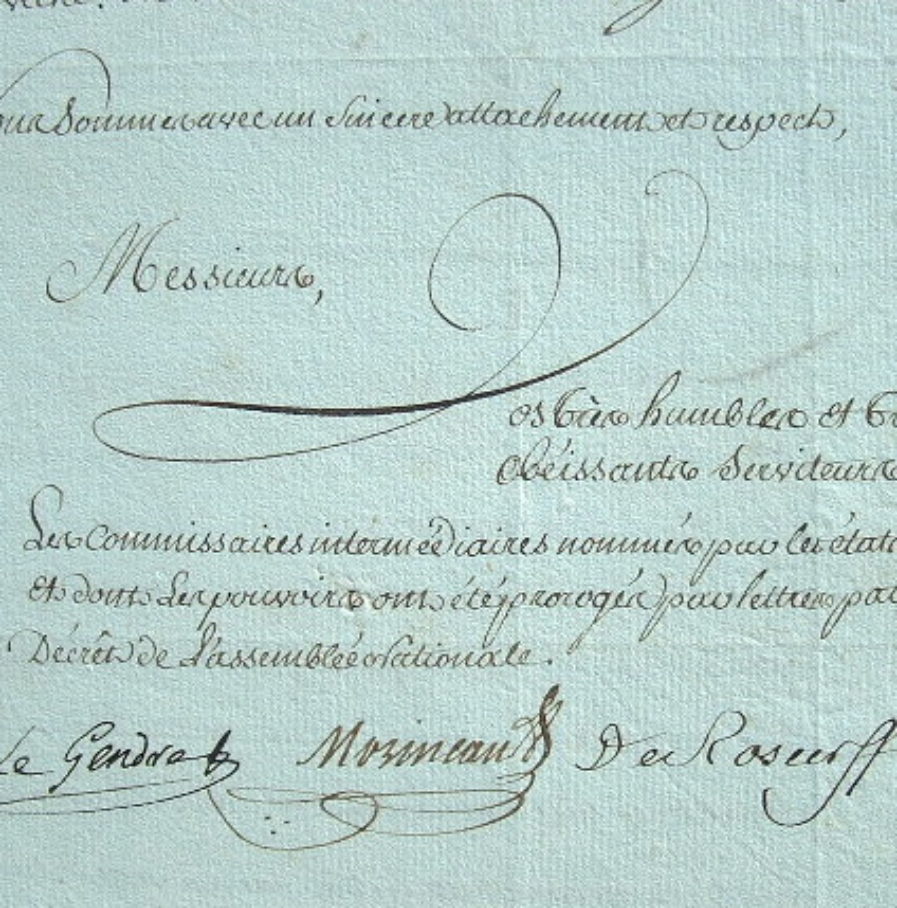 Nous sommes avec un sincere attachement et respect,
Messieurs,
Vos très humbles et
obéissants Serviteurs
Les Commissaires intermédiaires nommés par les états
et dont les pouvoirs ont été prorogés par lettres
Décrêt de L'assemblée Nationale.
Le Gendre